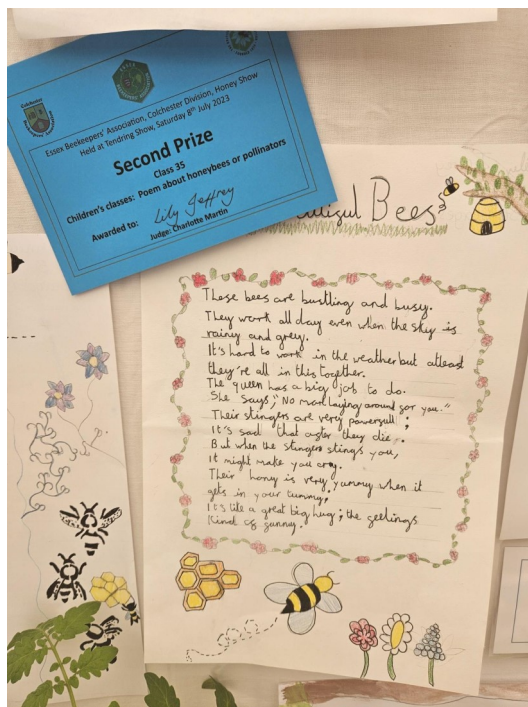 Colchester
Essex Beekeepers' Association, Colchester Division, Honey Show
Held at Tendring Show, Saturday 8th July 2023
Second Prize
Class 35
Children's classes: Poem about honeybees or pollinators
Awarded to: Lily Jeffrey
Judge: Charlotte Martin
Bees
These bees are bustling and busy.
They work all day even when the sky is
rainy and grey.
It's hard to work in the weather but atleast
they're all in this together.
The queen has a big job to do.
She says, "No more laying around for you."
Their stingers are very powerfull;
It's sad that after they die.
But when the stingers stings you,
It might make you cry.
Their honey is very yummy when it
gets in your tummy;
It's like a great big hug; the feelings
kind of funny.